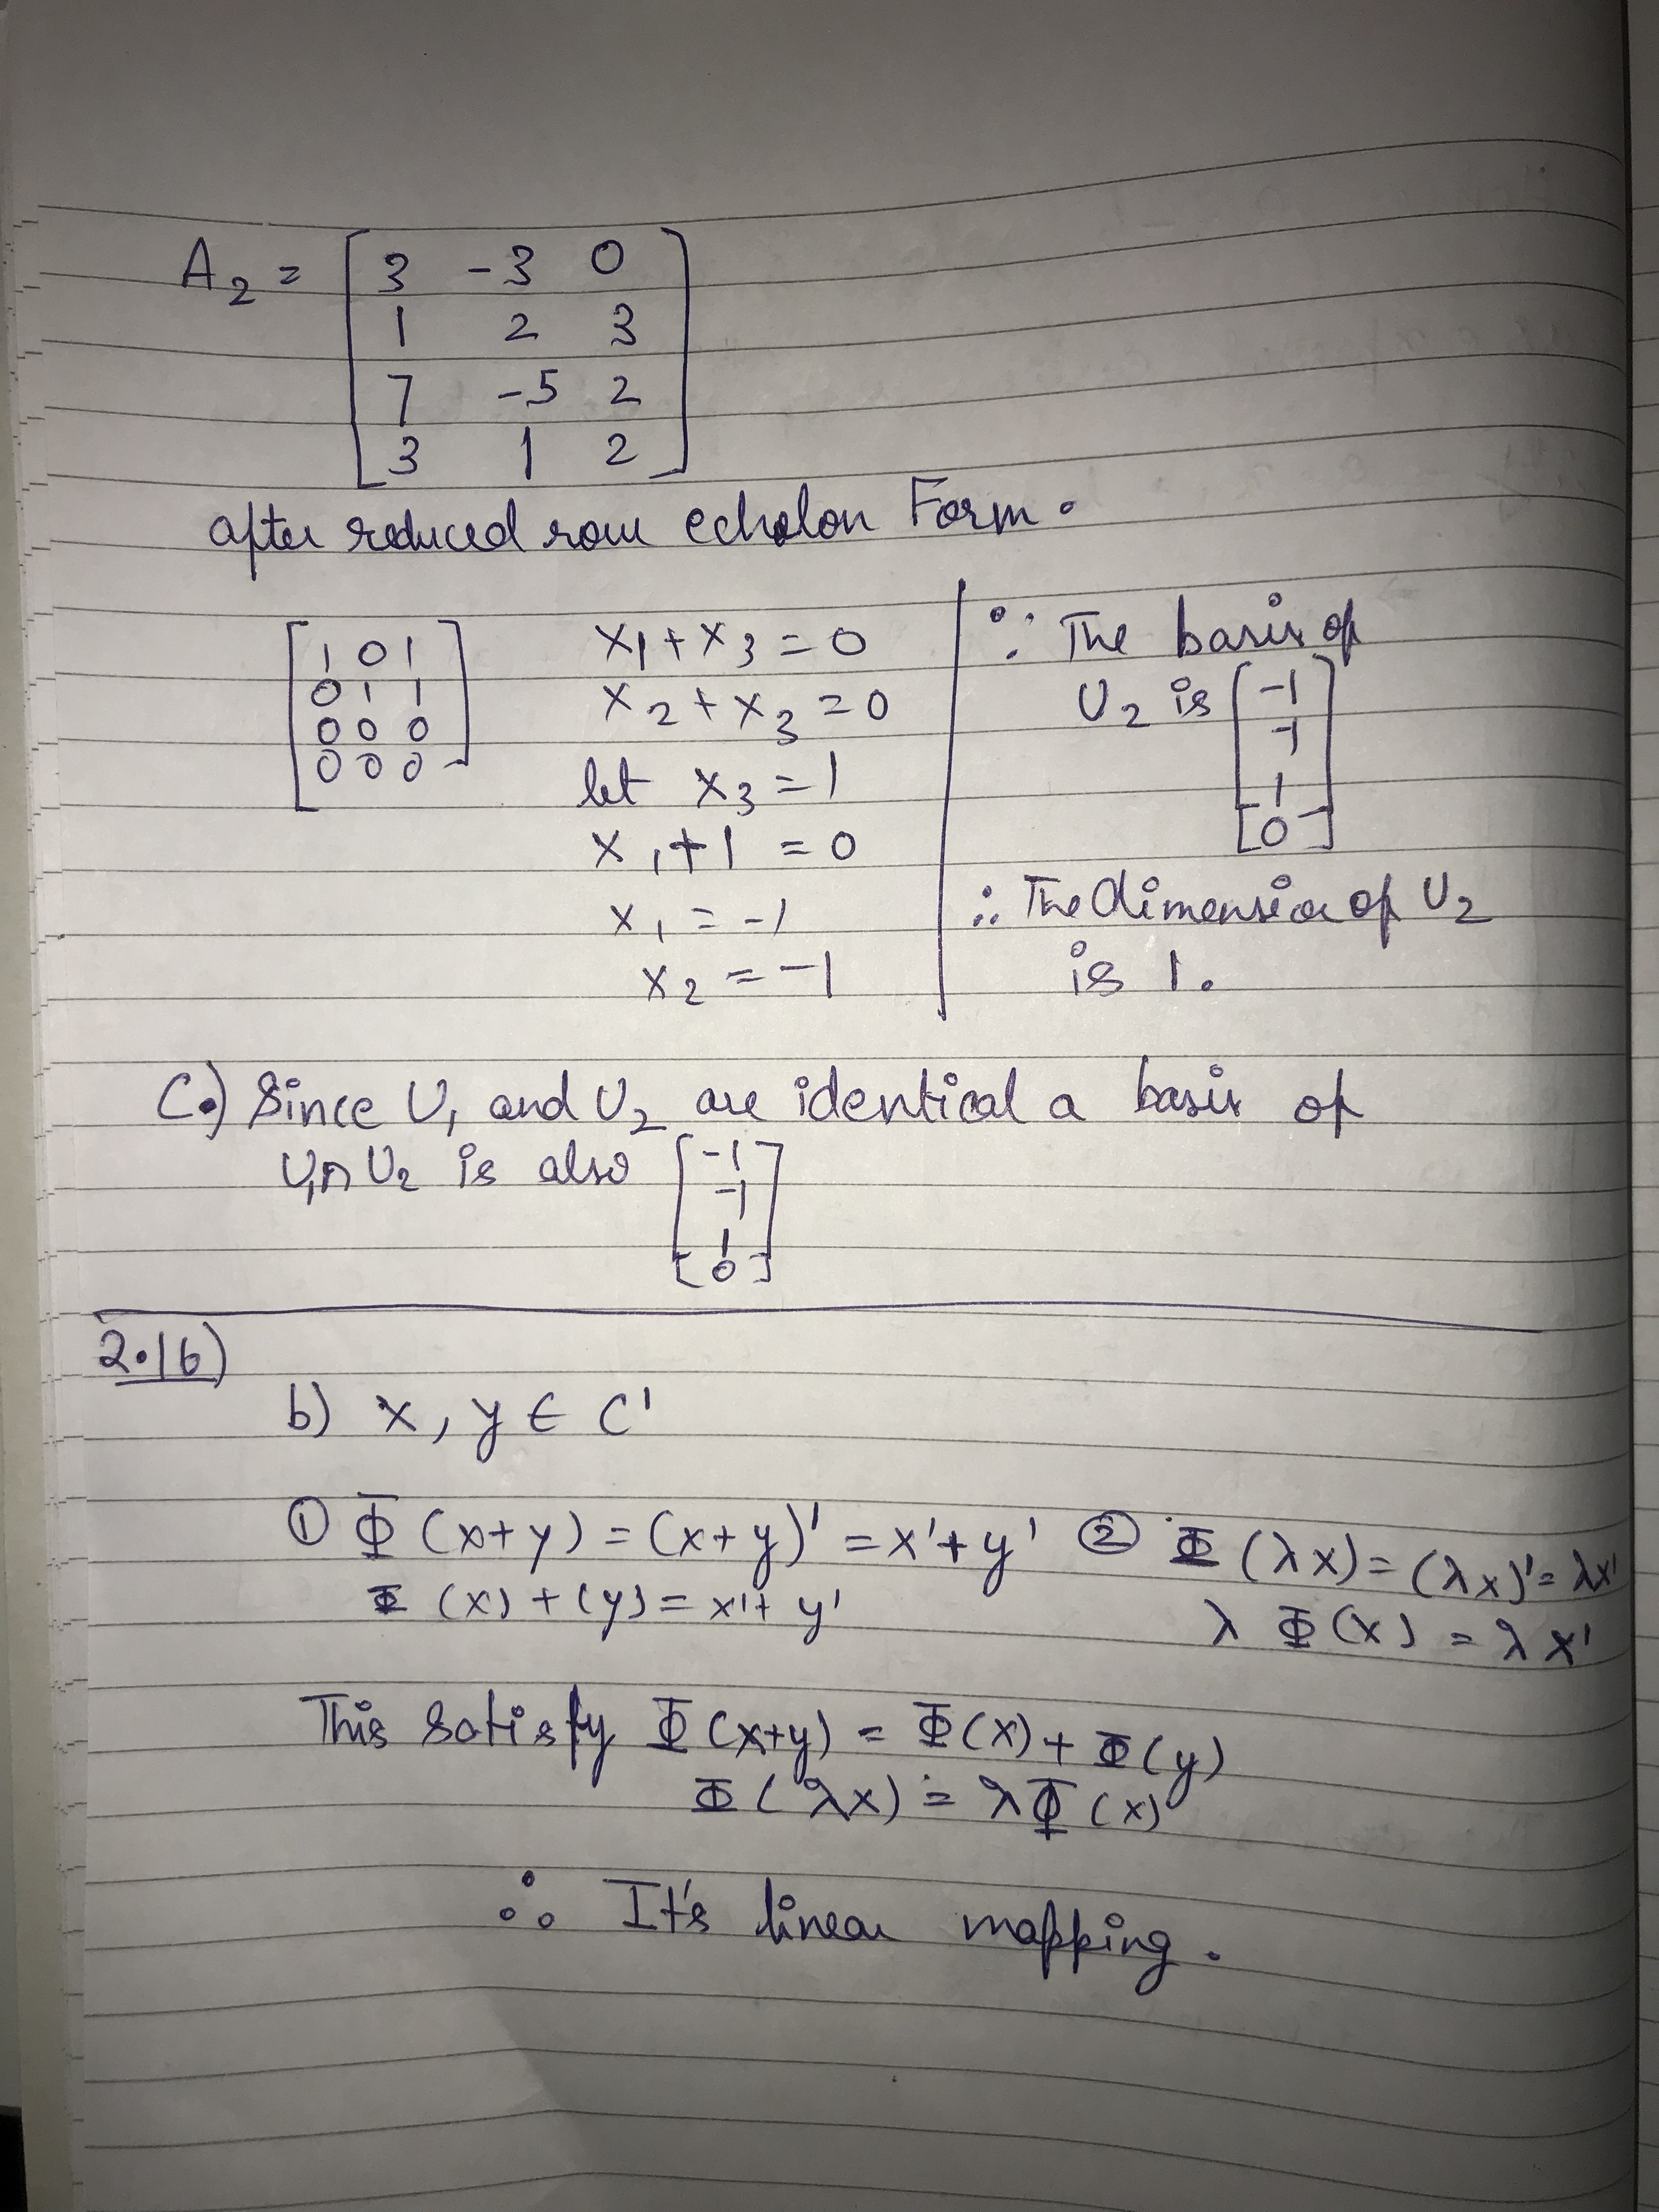 A₂ = [ 3 -3 0
1 2 3
7 -5 2
3 1 2 ]
after reduced row echolon Form.
[ 1 0 1
0 1 1
0 0 0
0 0 0 ]
x₁ + x₃ = 0
x₂ + x₃ = 0
let x₃ = 1
x₁ + 1 = 0
x₁ = -1
x₂ = -1
∵ The basis of
U₂ is [ -1
-1
1
0 ]
∴ The dimension of U₂
is 1.
C.) Since U₁ and U₂ are identical a basis of
U₁∩U₂ is also [ -1
-1
1
0 ]
2.16)
b) x, y ∈ C'
① Φ (x+y) = (x+y)' = x'+y' ② Φ (λx) = (λx)' = λx'
Φ (x) + (y) = x'+ y' λ Φ(x) = λx'
This satisfy Φ(x+y) = Φ(x) + Φ(y)
Φ(λx) = λΦ(x)
∴ It's linear mapping.